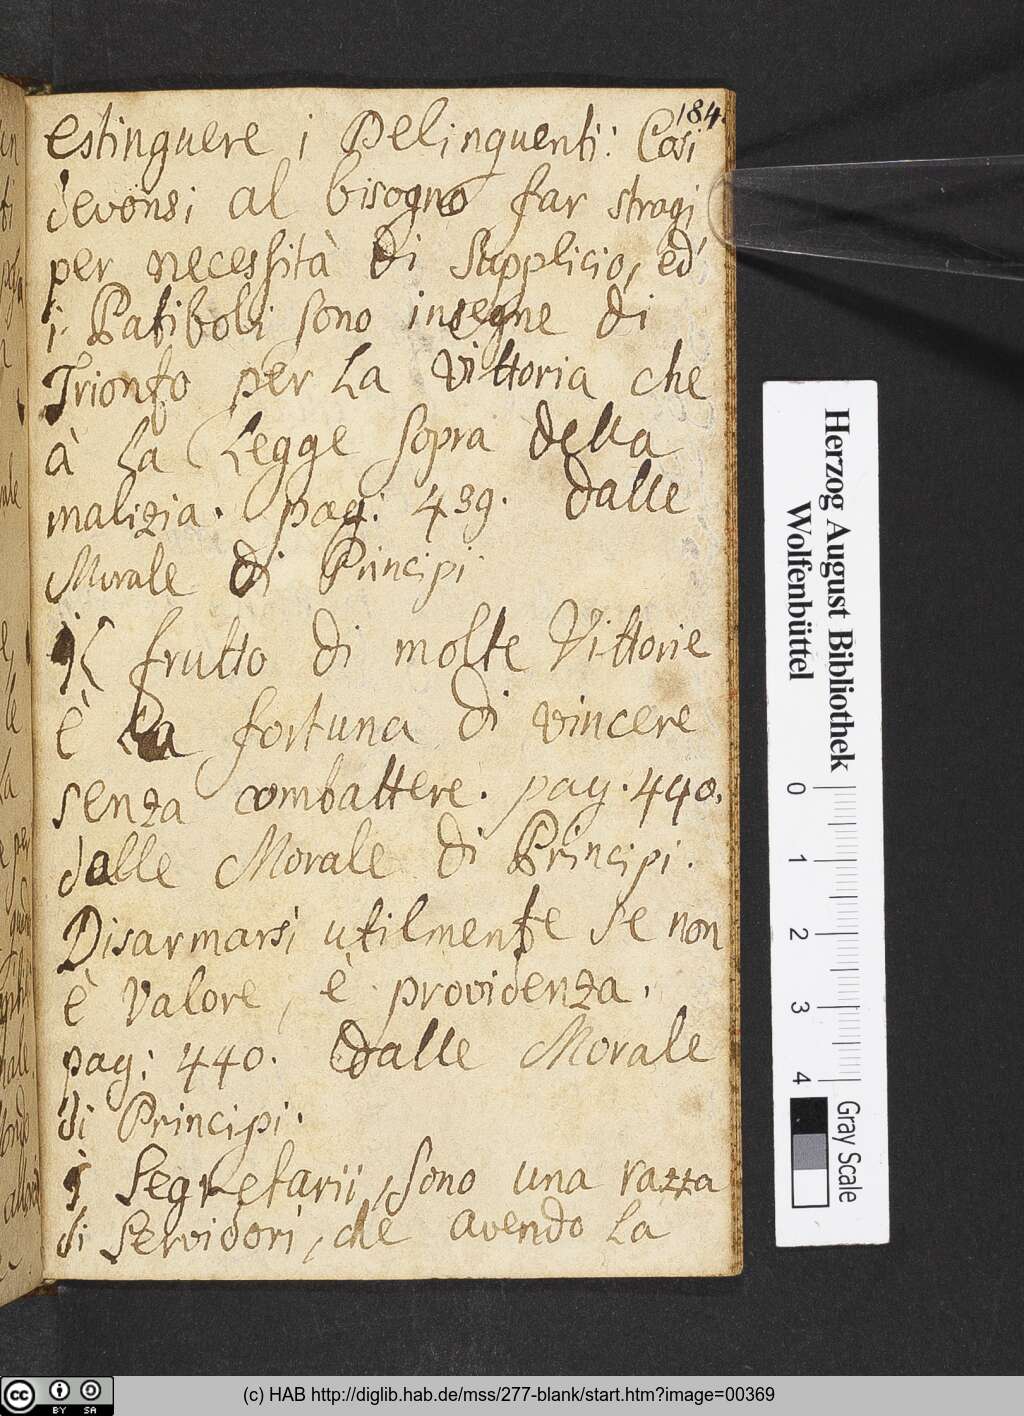 184.
estinguere i Delinquenti: Cosi
devonsi al bisogno far stragi
per necessità di Supplicio, ed
i Patiboli sono insegne di
Trionfo per La Vittoria che
à La Legge sopra della
malizia. pag: 439. dalle
Morale di Principi
il frutto di molte Vittorie
è La fortuna di vincere
senza combattere. pag. 440.
dalle Morale di Principi.
Disarmarsi utilmente se non
è Valore, è providenza.
pag: 440. dalle Morale
di Principi.
i Segretarii, sono una razza
di Servidori, che avendo La
Herzog August Bibliothek
Wolfenbüttel
0 1 2 3 4
Gray Scale
CC BY SA
(c) HAB http://diglib.hab.de/mss/277-blank/start.htm?image=00369